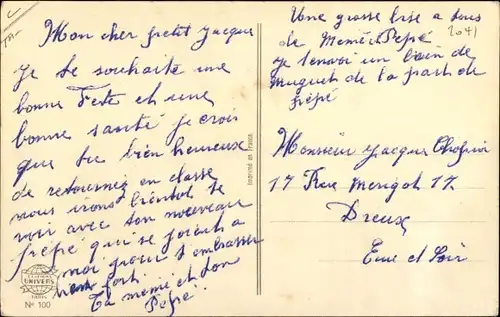 Mon cher petit Jacques
Je te souhaite une
bonne Fete et une
bonne santé je crois
que tu bien heureux
de retournez en classe
nous irons bientot te
voir avec ton nouveau
pépé qui se joint a
moi pour t'embrasser
bien fort.
Ta mémé et ton
Pépé
Une grosse bise a tous
de Mémé Pépé
je t'envoi un brin de
muguet de la part de
pépé
2041
Monsieur Jacques
17 Rue 17
Dreux
Eure et Loir
Imprimé en France
EDITIONS
UNIVERS
PARIS
No 100